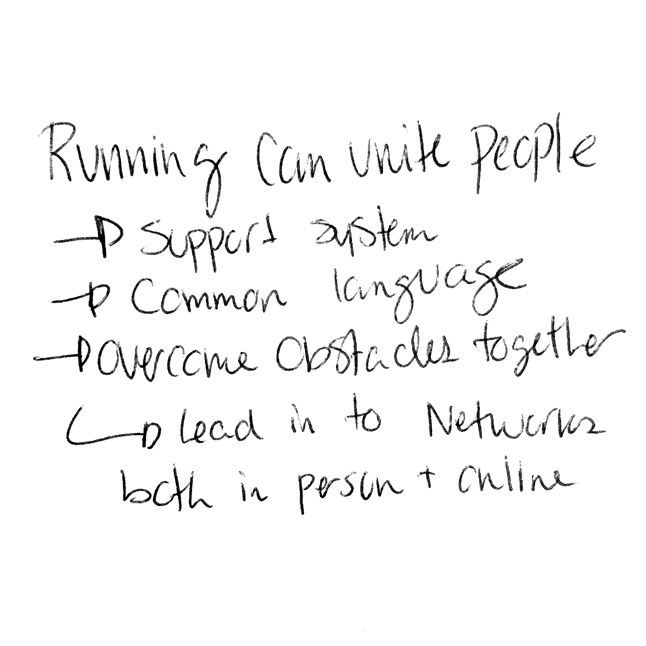 Running Can unite people
→ Support system
→ Common language
→ Overcome Obstacles together
↳ lead in to Networks
both in person + online